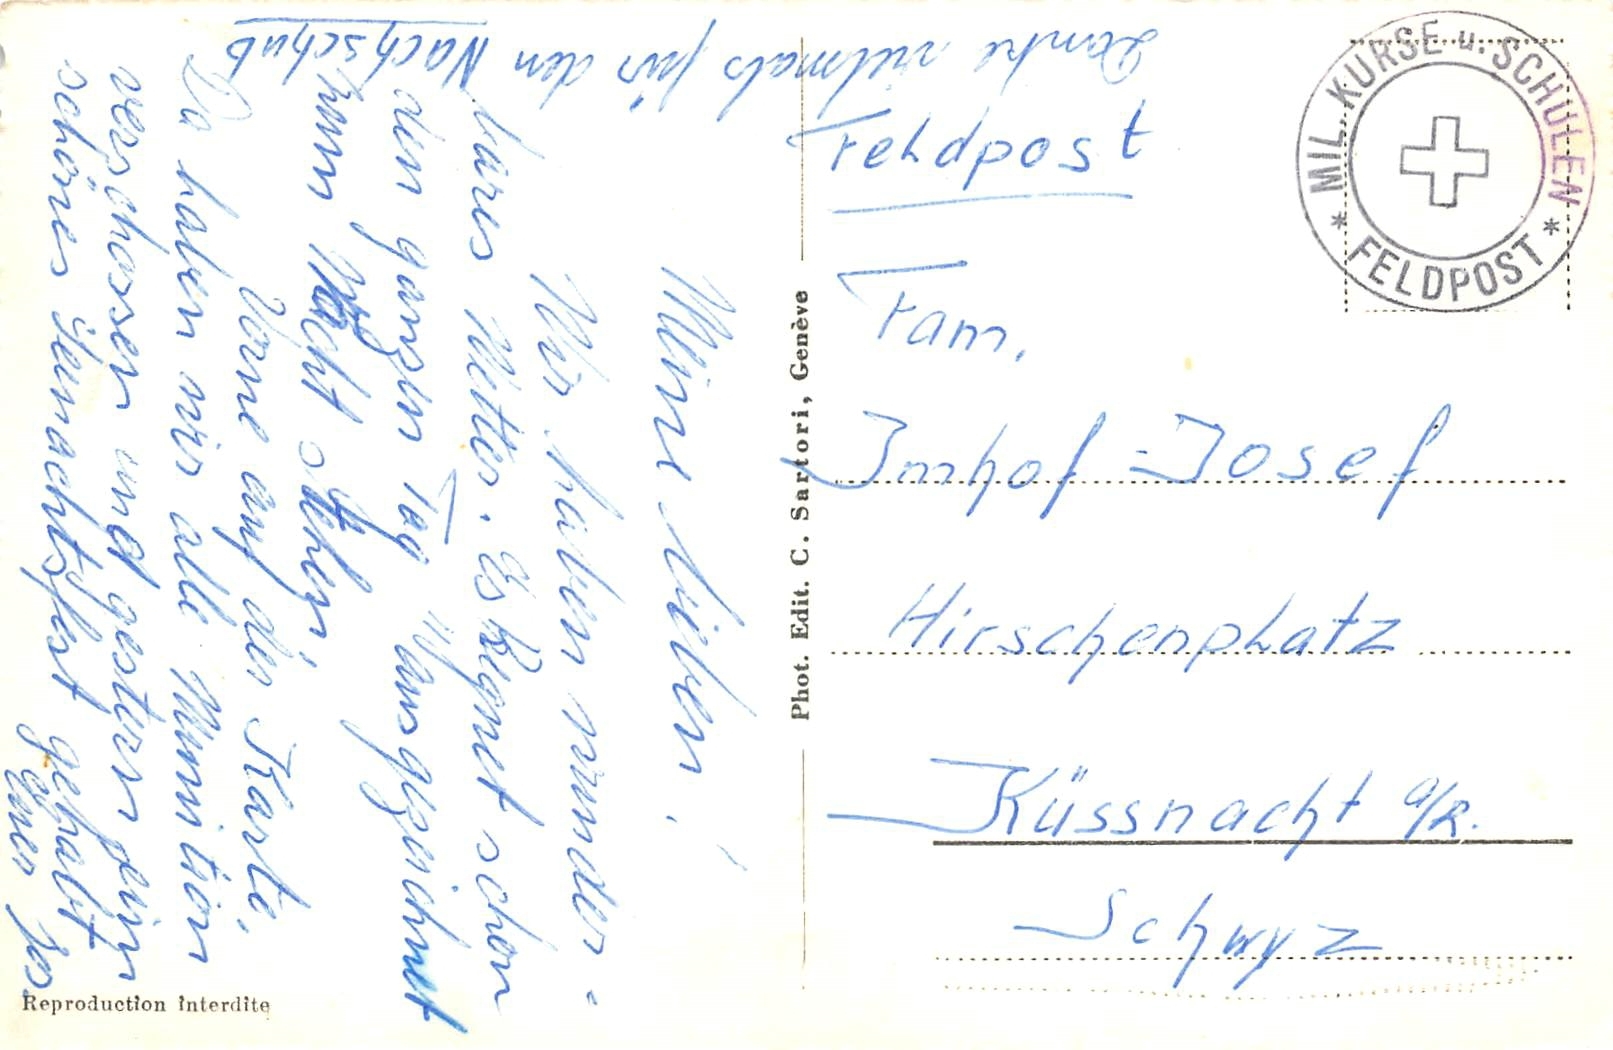 Meine Lieben!
Wir haben wunder-
bares Wetter. Es Regnet schon
den ganzen Tag "ausgezeichnet
zum stehen
Vorne auf der Karte,
Da haben wir alle Munition
verschossen und gestern ein
schönes gehabt
Euer Jos.
Danke vielmals für den Nachschub
Feldpost
Fam.
Imhof-Josef
Hirschenplatz
Küssnacht a/R.
Schwyz
MIL. KURSE u. SCHULEN
* FELDPOST *
Phot. Edit. C. Sartori, Genève
Reproduction interdite